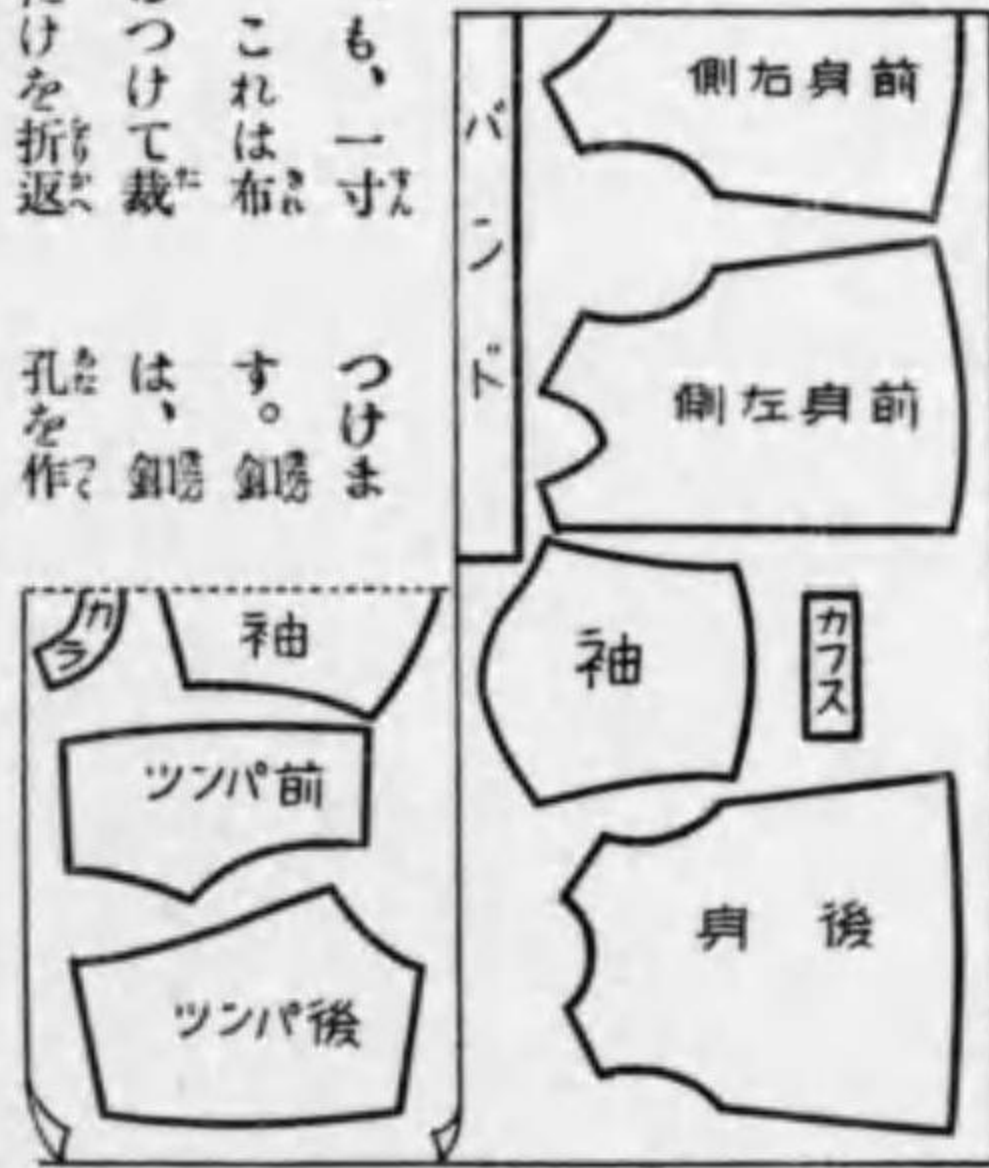 も、一寸
これは布
つけて裁
けを折返
つけま
す。釦
は、釦
孔を作
バンド
側右身前
側左身前
袖
カフス
身後
カラ
袖
ツンパ前
ツンパ後